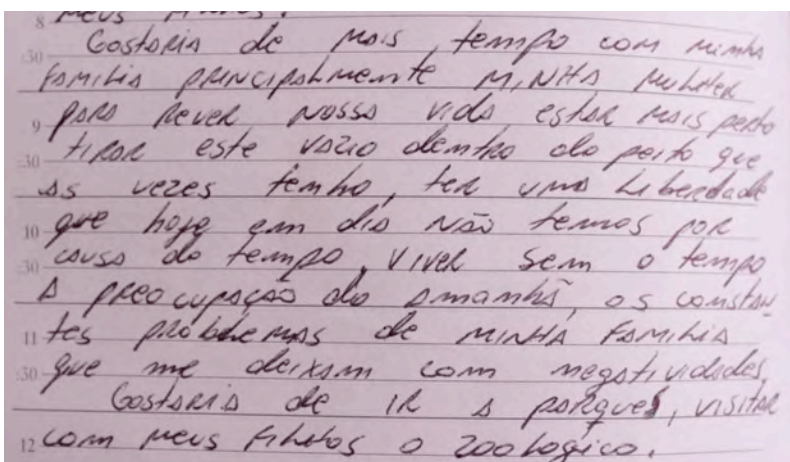 8 meus filhos.
Gostaria de mais tempo com minha
:30 familia principalmente minha mulher
para rever nossa vida estar mais perto
9 tirar este vazio dentro do peito que
:30 as vezes tenho, ter uma liberdade
que hoje em dia não temos por
10 causa do tempo, viver sem o tempo
:30 a preocupação do amanhã, os constan
11 tes problemas de minha familia
:30 que me deixam com negatividades,
Gostaria de ir a parques, visitar
12 com meus filhos o zoologico.